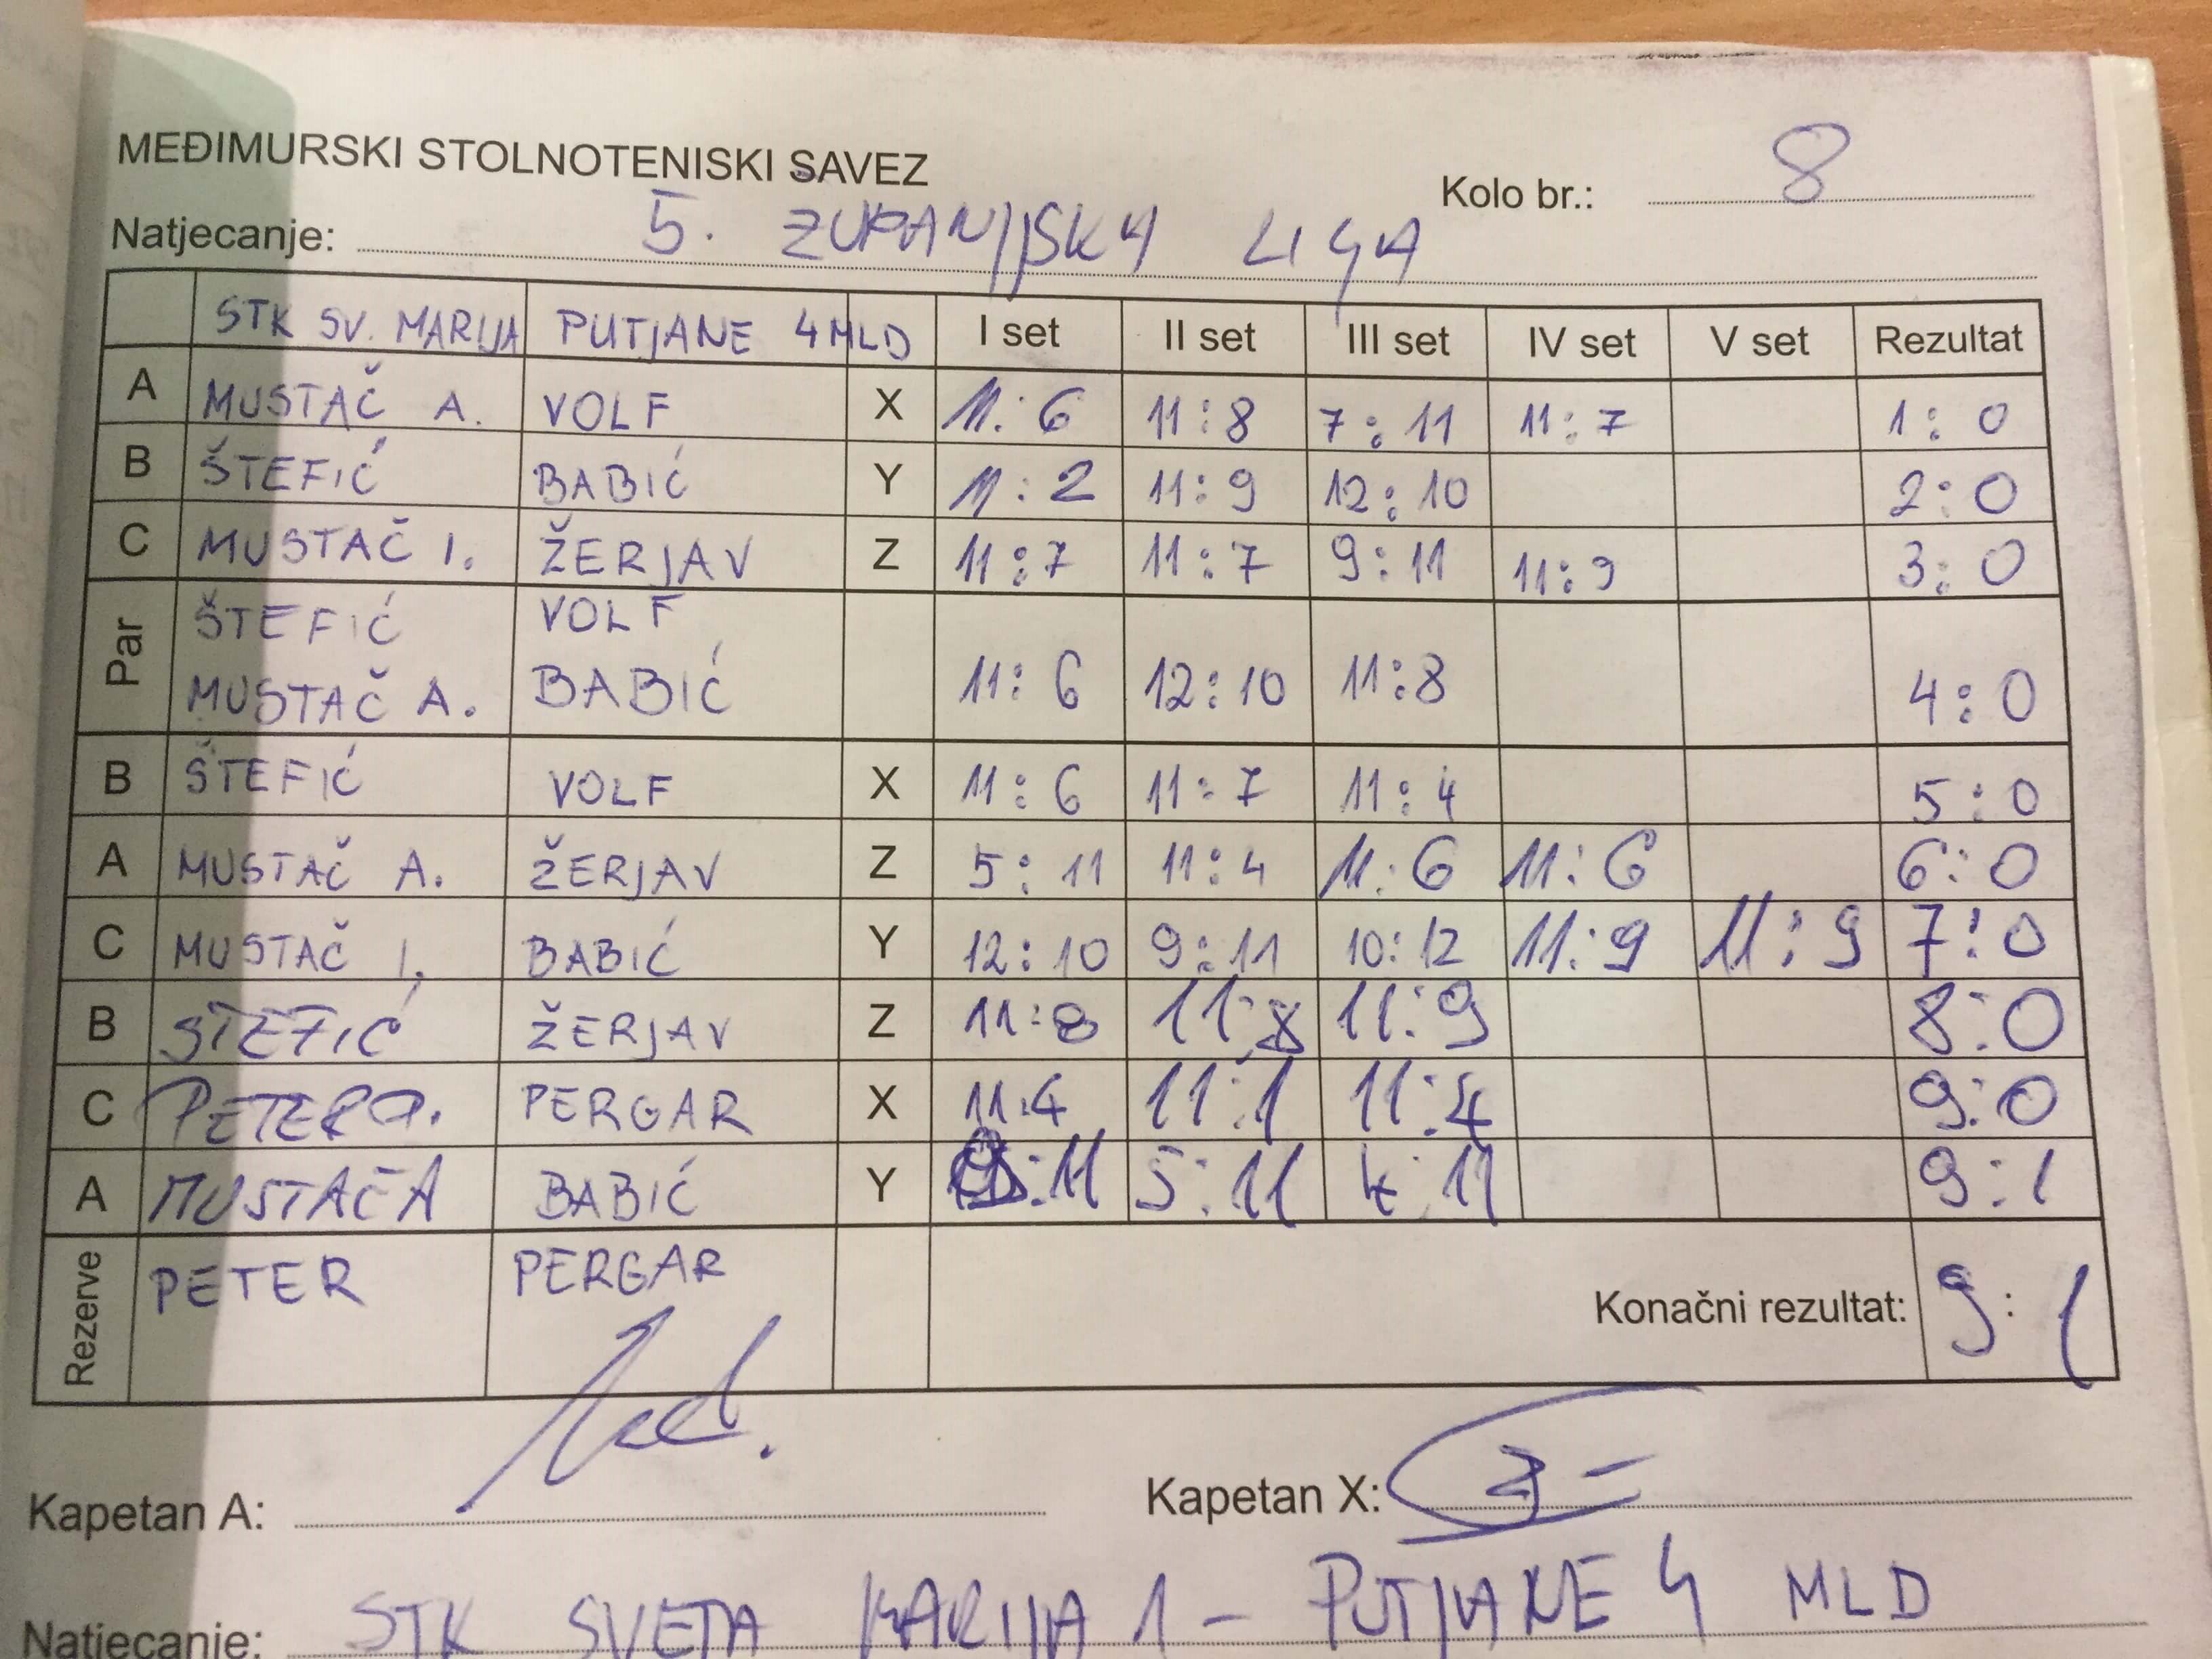 MEĐIMURSKI STOLNOTENISKI SAVEZ
Kolo br.: 8
Natjecanje: 5. ŽUPANIJSKA LIGA
STK SV. MARIJA PUTJANE 4 MLD I set II set III set IV set V set Rezultat
A MUSTAČ A. VOLF X 11:6 11:8 7:11 11:7 1:0
B ŠTEFIĆ BABIĆ Y 11:2 11:9 12:10 2:0
C MUSTAČ I. ŽERJAV Z 11:7 11:7 9:11 11:9 3:0
Par ŠTEFIĆ VOLF
MUSTAČ A. BABIĆ 11:6 12:10 11:8 4:0
B ŠTEFIĆ VOLF X 11:6 11:7 11:4 5:0
A MUSTAČ A. ŽERJAV Z 5:11 11:4 11:6 11:6 6:0
C MUSTAČ I. BABIĆ Y 12:10 9:11 10:12 11:9 11:9 7:0
B STEFIĆ ŽERJAV Z 11:8 11:8 11:9 8:0
C PETER PERGAR X 11:4 11:1 11:4 9:0
A MUSTAČ A BABIĆ Y :11 5:11 4:11 9:1
Rezerve PETER PERGAR
Konačni rezultat: 9:1
Kapetan A: Kapetan X:
Natjecanje: STK SVETA MARIJA 1 - PUTJANE 4 MLD